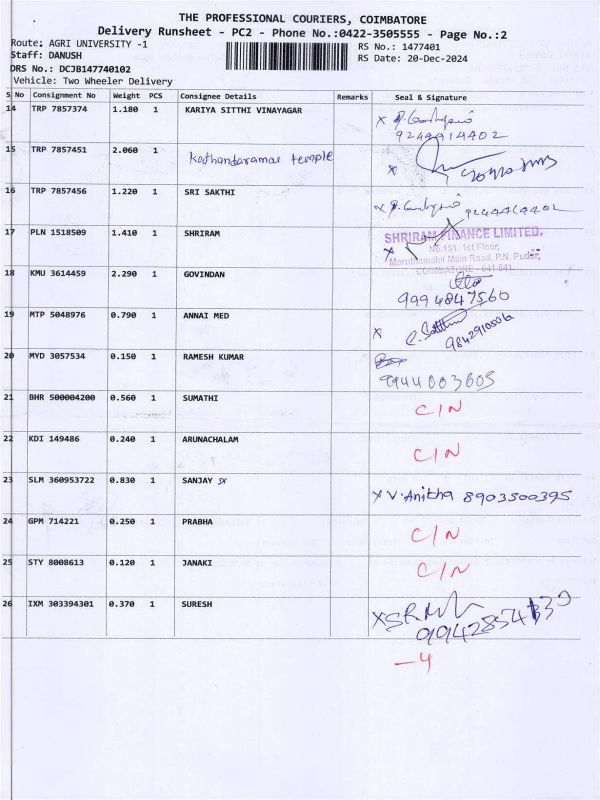 THE PROFESSIONAL COURIERS, COIMBATORE
Delivery Runsheet - PC2 - Phone No.:0422-3505555 - Page No.:2
Route: AGRI UNIVERSITY -1
Staff: DANUSH
DRS No.: DCJB147740102
Vehicle: Two Wheeler Delivery
RS No.: 1477401
RS Date: 20-Dec-2024
S No Consignment No Weight PCS Consignee Details Remarks Seal & Signature
14 TRP 7857374 1.180 1 KARIYA SITTHI VINAYAGAR
9244914402
15 TRP 7857451 2.060 1 Kothandaramar temple
16 TRP 7857456 1.220 1 SRI SAKTHI
17 PLN 1518509 1.410 1 SHRIRAM
SHRIRAM FINANCE LIMITED,
No.151, 1st Floor,
Maruthamalai Main Road, P.N. Pudur,
COIMBATORE - 641 041.
18 KMU 3614459 2.290 1 GOVINDAN
9994847560
19 MTP 5048976 0.790 1 ANNAI MED
x
20 MYD 3057534 0.150 1 RAMESH KUMAR
9944003605
21 BHR 500004200 0.560 1 SUMATHI C/N
22 KDI 149486 0.240 1 ARUNACHALAM C/N
23 SLM 360953722 0.830 1 SANJAY x V. Anitha 8903500395
24 GPM 714221 0.250 1 PRABHA C/N
25 STY 8008613 0.120 1 JANAKI C/N
26 IXM 303394301 0.370 1 SURESH
-4